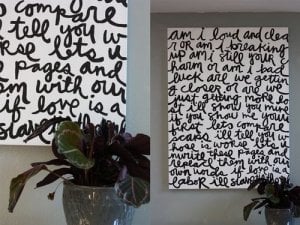 compare
tell you w
rse lets u
pages and
em with our
if love is a
slave
am i loud and clea
r or am i breaking
up am i still your c
harm or am i bad
luck are we getting
closer or are we
just getting more lo
st ill show you mine
if you show me yours
first lets compare
scars ill tell you w
hose is worse lets u
nwrite these pages and
replace them with our
own words if love is a
labor ill slave